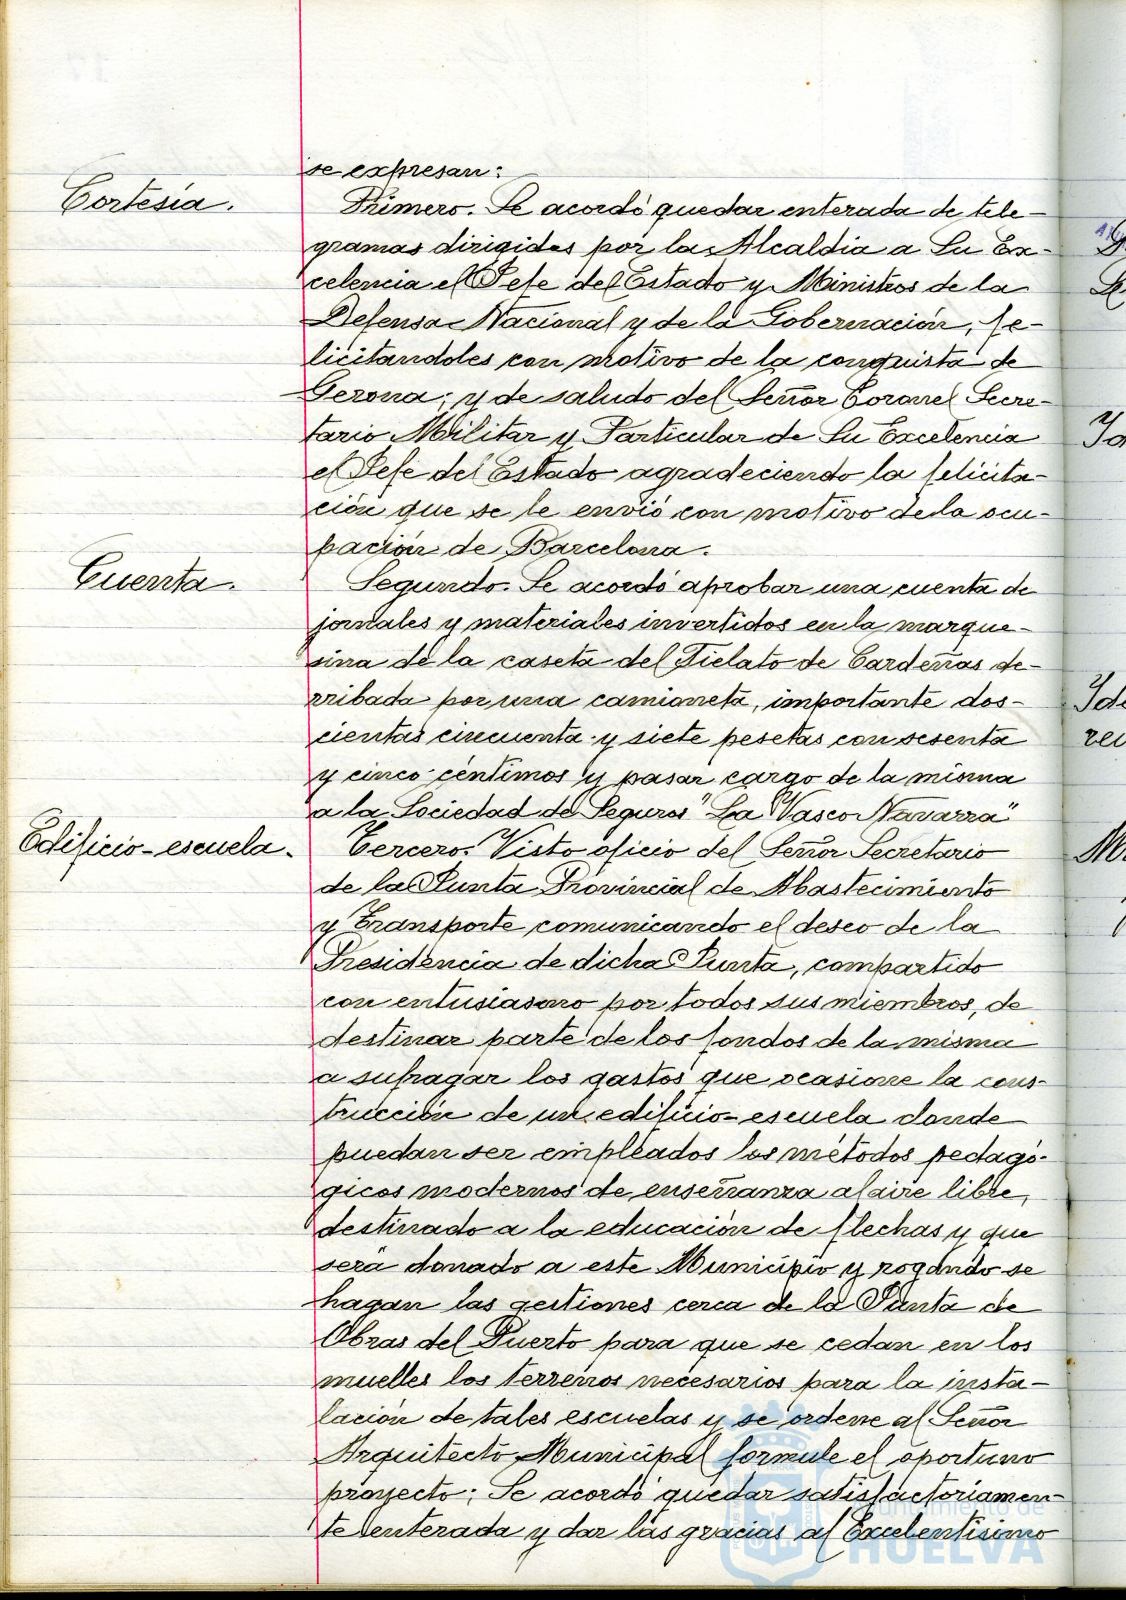 se expresan:
Cortesía.
Primero. Se acordó quedar enterada de tele-
gramas dirigidos por la Alcaldia a Su Ex-
celencia el Jefe del Estado y Ministros de la
Defensa Nacional y de la Gobernación, fe-
licitandoles con motivo de la conquista de
Gerona; y de saludo del Señor Coronel Secre-
tario Militar y Particular de Su Excelencia
el Jefe del Estado agradeciendo la felicita-
ción que se le envió con motivo de la ocu-
pación de Barcelona.
Cuenta.
Segundo. Se acordó aprobar una cuenta de
jornales y materiales invertidos en la marque-
sina de la caseta del Fielato de Cardeñas de-
rribada por una camioneta, importante dos-
cientas cincuenta y siete pesetas con sesenta
y cinco céntimos y pasar cargo de la misma
a la Sociedad de Seguros "La Vasco Navarra"
Edificio-escuela.
Tercero. Visto oficio del Señor Secretario
de la Junta Provincial de Abastecimiento
y Transporte comunicando el deseo de la
Presidencia de dicha Junta, compartido
con entusiasmo por todos sus miembros, de
destinar parte de los fondos de la misma
a sufragar los gastos que ocasione la cons-
trucción de un edificio-escuela donde
puedan ser empleados los métodos pedagó-
gicos modernos de enseñanza al aire libre,
destinado a la educación de flechas y que
será donado a este Municipio y rogando se
hagan las gestiones cerca de la Junta de
Obras del Puerto para que se cedan en los
muelles los terrenos necesarios para la insta-
lación de tales escuelas y se ordene al Señor
Arquitecto Municipal formule el oportuno
proyecto; Se acordó quedar satisfactoriamen-
te enterada y dar las gracias al Excelentísimo
Ayuntamiento de
HUELVA